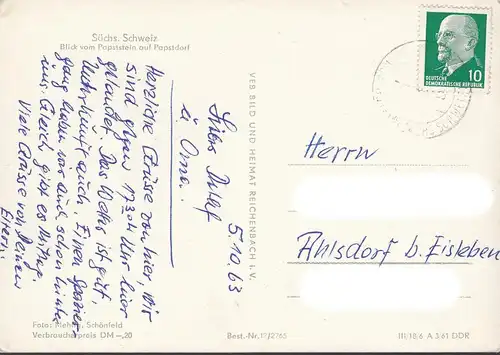 Sächs. Schweiz
Blick vom Papststein auf Papstdorf
5.10.63
u. Oma.
Herzliche Grüsse von hier, wir
sind gegen 17³⁰ Uhr hier
gelandet. Das Wetter ist gut,
Unterkunft auch. Einen Spazier
gang haben wir auch schon hinter
uns. Gleich gibt es Mittag.
Viele Grüsse von Deinen
Eltern.
Foto: Schönfeld
Verbraucherpreis DM –,20
VEB BILD UND HEIMAT REICHENBACH i. V.
Best.-Nr. 17/2765
DEUTSCHE
DEMOKRATISCHE REPUBLIK
10
Herrn
Ahlsdorf b. Eisleben
III/18/6 A 3/61 DDR